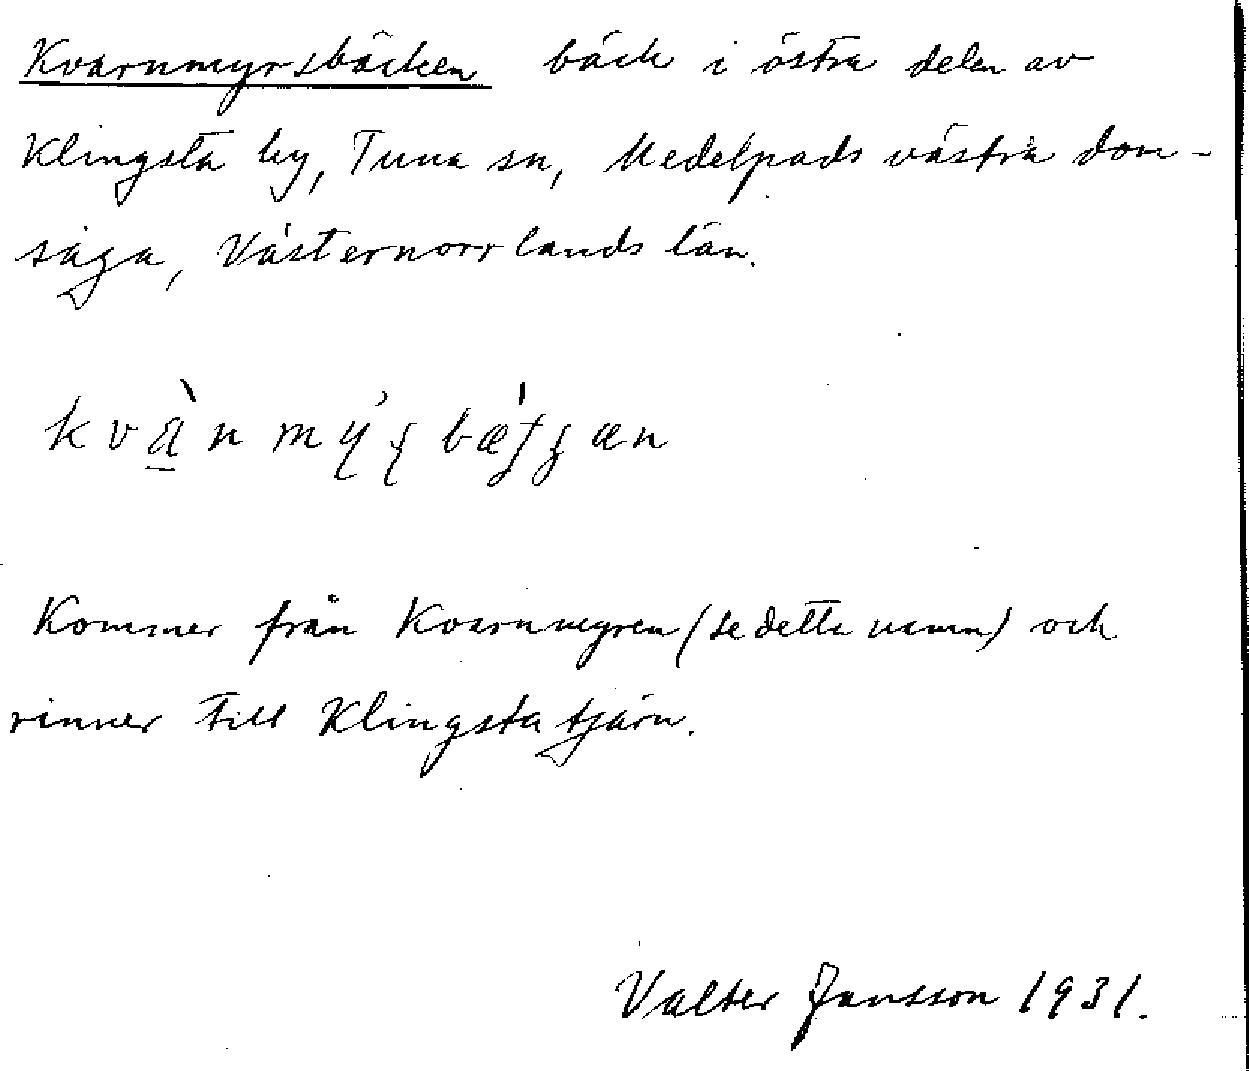 Kvarnmyrsbäcken bäck i östra delen av
Klingsta by, Tuna sn, Medelpads västra dom-
saga, Västernorrlands län.
Kommer från Kvarnmyren (se detta namn) och
rinner till Klingstatjärn.
Valter Jansson 1931.